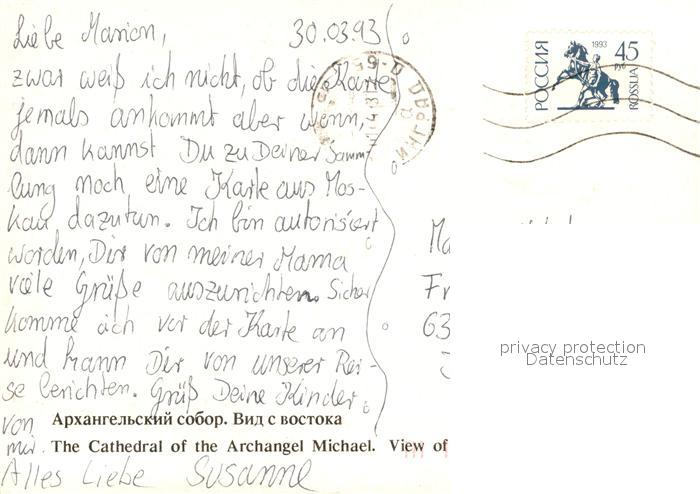 Liebe Marion, 30.03.93
zwar weiß ich nicht, ob die Karte
jemals ankommt aber wenn,
dann kannst Du zu Deiner Samm-
lung noch, eine Karte aus Mos-
kau dazutun. Ich bin autorisiert
worden, Dir von meiner Mama
viele Grüße auszurichten. Sicher
komme ich vor der Karte an
und kann Dir von unserer Rei-
se berichten. Grüß Deine Kinder
von
mir.
Alles Liebe Susanne
Архангельский собор. Вид с востока
The Cathedral of the Archangel Michael. View of
РОССИЯ
1993
45
руб
ROSSIJA
Ma
Fr
63
privacy protection
Datenschutz